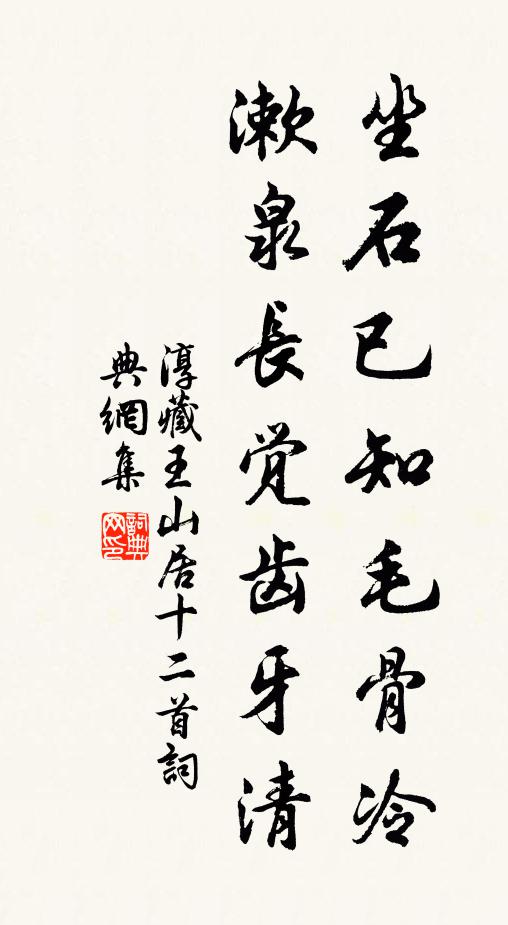 坐石已知毛骨冷
漱泉長觉齿牙清
淳藏王山居十二首詞
典網集
詞典
网印